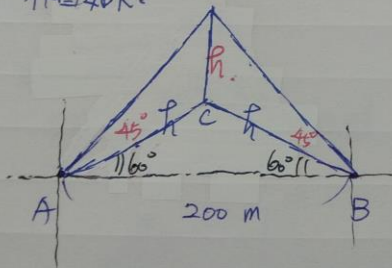 h.
45° h C h 45°
60° 60°
A 200 m B